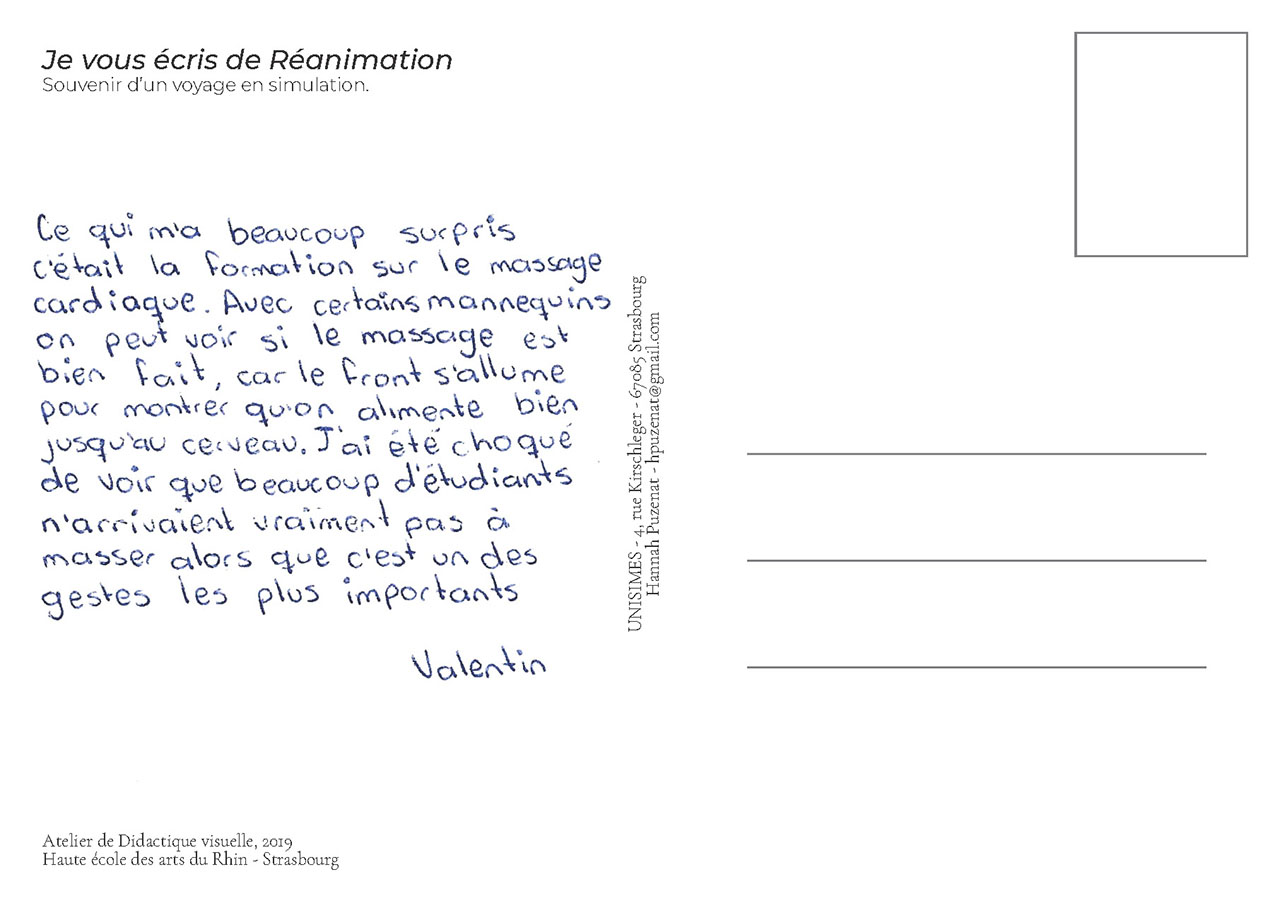 Je vous écris de Réanimation
Souvenir d'un voyage en simulation.
Ce qui m'a beaucoup surpris
c'était la formation sur le massage
cardiaque. Avec certains mannequins
on peut voir si le massage est
bien fait, car le front s'allume
pour montrer qu'on alimente bien
jusqu'au cerveau. J'ai été choqué
de voir que beaucoup d'étudiants
n'arrivaient vraiment pas à
masser alors que c'est un des
gestes les plus importants
Valentin
UNISIMES - 4, rue Kirschleger - 67085 Strasbourg
Hannah Puzenat - hpuzenat@gmail.com
Atelier de Didactique visuelle, 2019
Haute école des arts du Rhin - Strasbourg